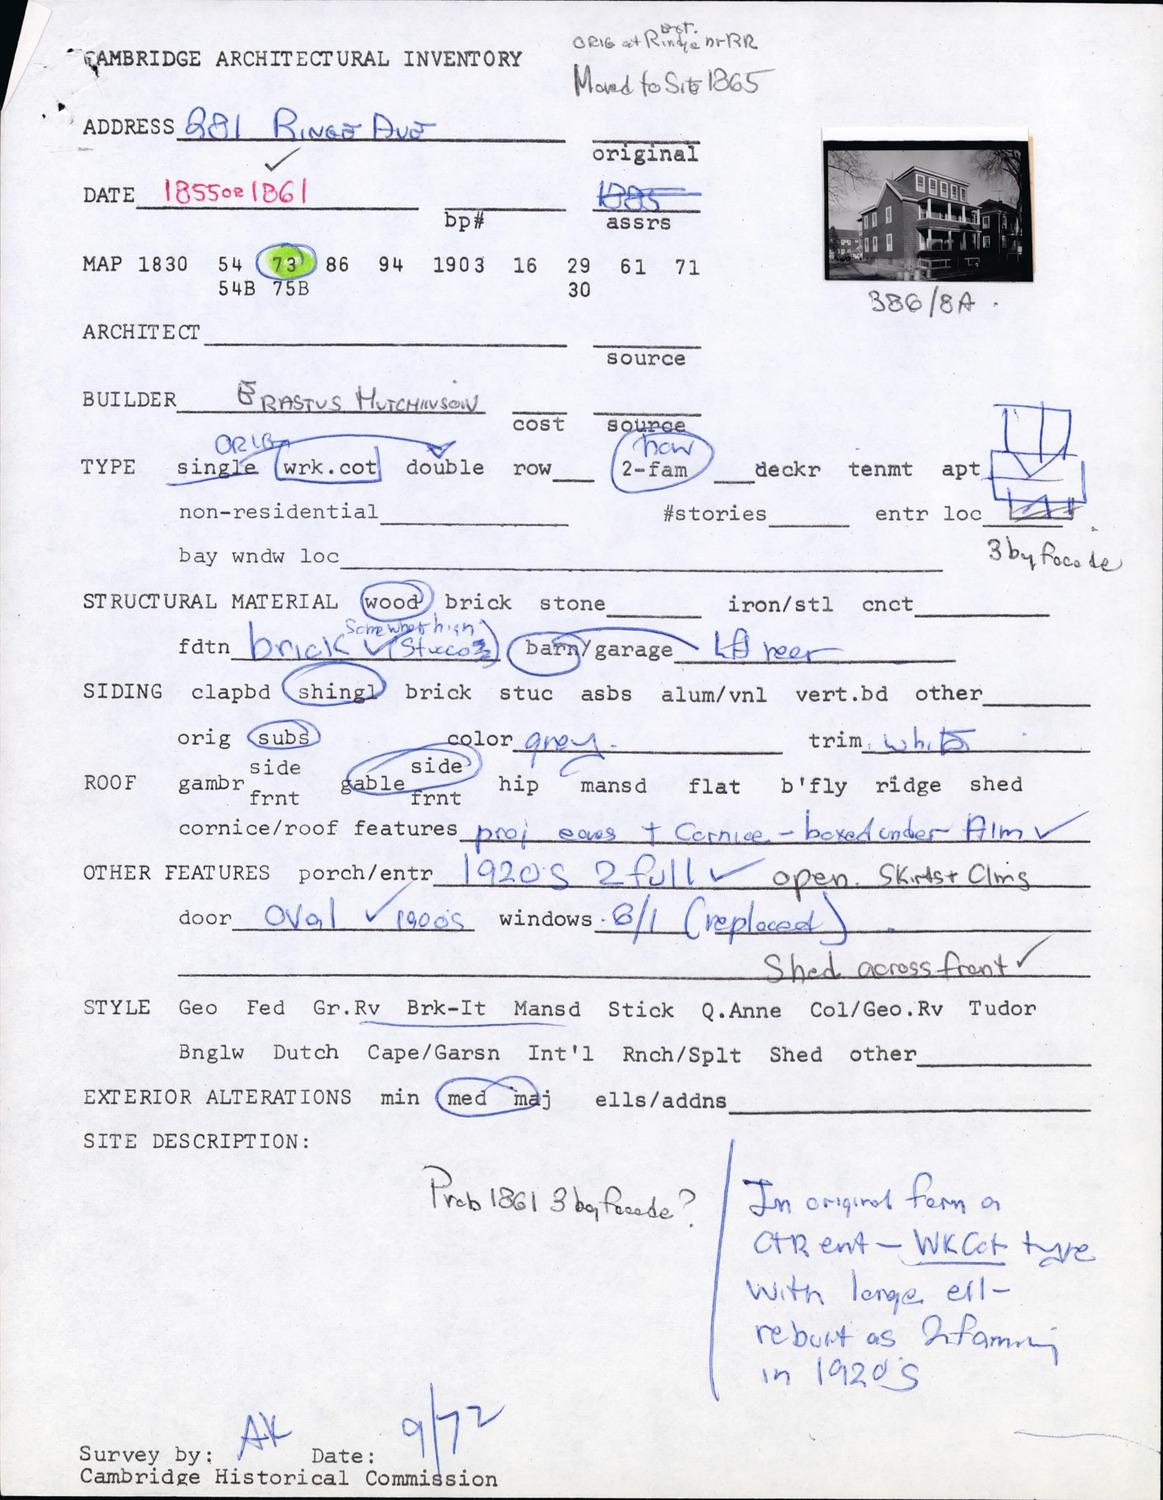 CAMBRIDGE ARCHITECTURAL INVENTORY
ORIG at Rindge nr RR
Moved to Site 1865
ADDRESS 281 RINGE AVE
original
DATE 1855 OR 1861 bp# 1885 assrs
MAP 1830 54 73 86 94 1903 16 29 61 71
54B 75B 30
386/8A
ARCHITECT source
BUILDER ERASTUS HUTCHINSON cost source
ORIG now
TYPE single wrk.cot double row 2-fam deckr tenmt apt
non-residential #stories entr loc
3 bay facade
bay wndw loc
STRUCTURAL MATERIAL wood brick stone iron/stl cnct
somewhat high
fdtn brick (Stucco) barn/garage rear
SIDING clapbd shingl brick stuc asbs alum/vnl vert.bd other
orig subs color grey. trim white
ROOF gambr side frnt gable side frnt hip mansd flat b'fly ridge shed
cornice/roof features proj eaves + Cornice - boxed under Alm
OTHER FEATURES porch/entr 1920's 2 full open. Skirts + Clngs
door oval 1900s windows 6/1 (replaced)
Shed across front
STYLE Geo Fed Gr.Rv Brk-It Mansd Stick Q.Anne Col/Geo.Rv Tudor
Bnglw Dutch Cape/Garsn Int'l Rnch/Splt Shed other
EXTERIOR ALTERATIONS min med maj ells/addns
SITE DESCRIPTION:
Prob 1861 3 bay facade?
In original form a
CTR ent - WK Cot type
with large ell -
rebuilt as 2 family
in 1920's
Survey by: AK Date: 9/72
Cambridge Historical Commission